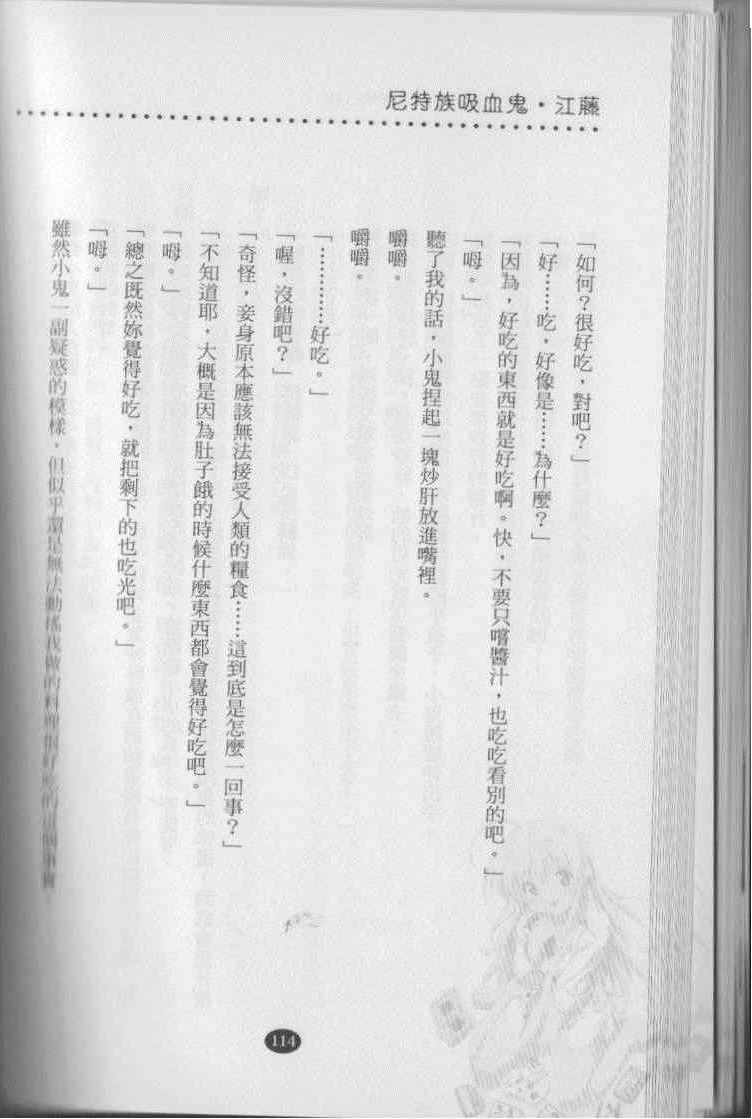 尼特族吸血鬼・江藤
「如何？很好吃，對吧？」
「好……吃，好像是……為什麼？」
「因為，好吃的東西就是好吃啊。快，不要只嚐醬汁，也吃吃看別的吧。」
「唔。」
聽了我的話，小鬼捏起一塊炒肝放進嘴裡。
嚼嚼。
嚼嚼。
「…………好吃。」
「喔，沒錯吧？」
「奇怪，妾身原本應該無法接受人類的糧食……這到底是怎麼一回事？」
「不知道耶，大概是因為肚子餓的時候什麼東西都會覺得好吃吧。」
「唔。」
「總之既然妳覺得好吃，就把剩下的也吃光吧。」
「唔。」
雖然小鬼一副疑惑的模樣，但似乎還是無法動搖我做的料理很好吃的這個事實。
114